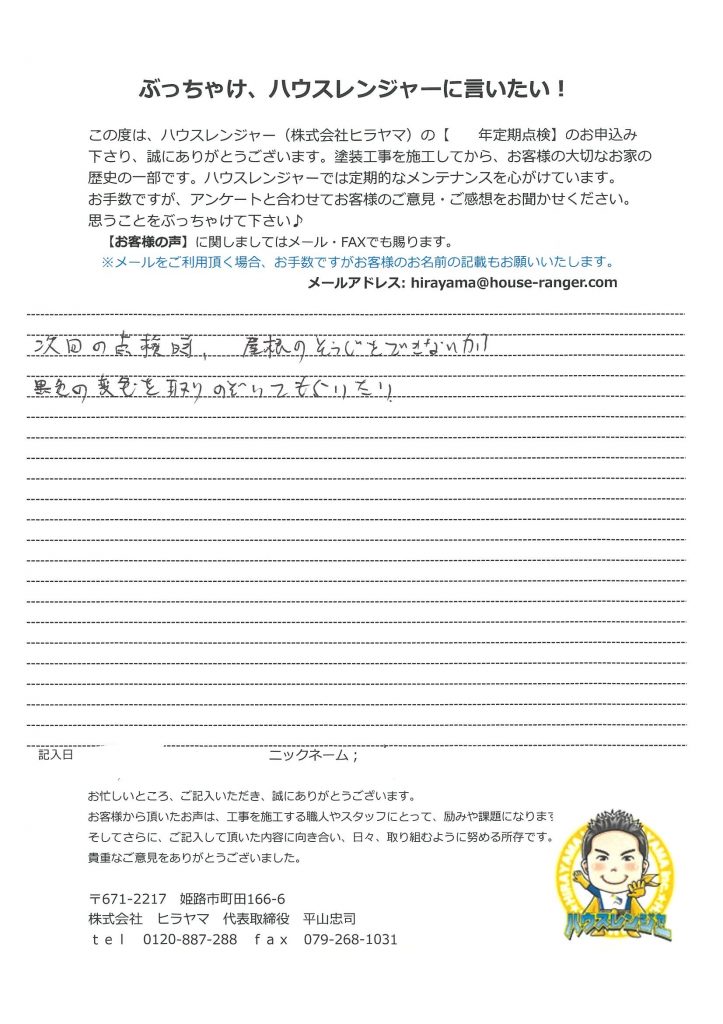 ぶっちゃけ、ハウスレンジャーに言いたい！
この度は、ハウスレンジャー（株式会社ヒラヤマ）の【　　年定期点検】のお申込み
下さり、誠にありがとうございます。塗装工事を施工してから、お客様の大切なお家の
歴史の一部です。ハウスレンジャーでは定期的なメンテナンスを心がけています。
お手数ですが、アンケートと合わせてお客様のご意見・ご感想をお聞かせください。
思うことをぶっちゃけて下さい♪
【お客様の声】に関しましてはメール・FAXでも賜ります。
※メールをご利用頂く場合、お手数ですがお客様のお名前の記載もお願いいたします。
メールアドレス: hirayama@house-ranger.com
次回の点検時、屋根のそうじをできないか?
黒色の変色を取りのぞいてもらいたい
記入日　ニックネーム；
お忙しいところ、ご記入いただき、誠にありがとうございます。
お客様から頂いたお声は、工事を施工する職人やスタッフにとって、励みや課題になります
そしてさらに、ご記入して頂いた内容に向き合い、日々、取り組むように努める所存です。
貴重なご意見をありがとうございました。
〒671-2217　姫路市町田166-6
株式会社　ヒラヤマ　代表取締役　平山忠司
ｔｅｌ　0120-887-288　ｆａｘ　079-268-1031
HIRAYAMA
ハウスレンジャー